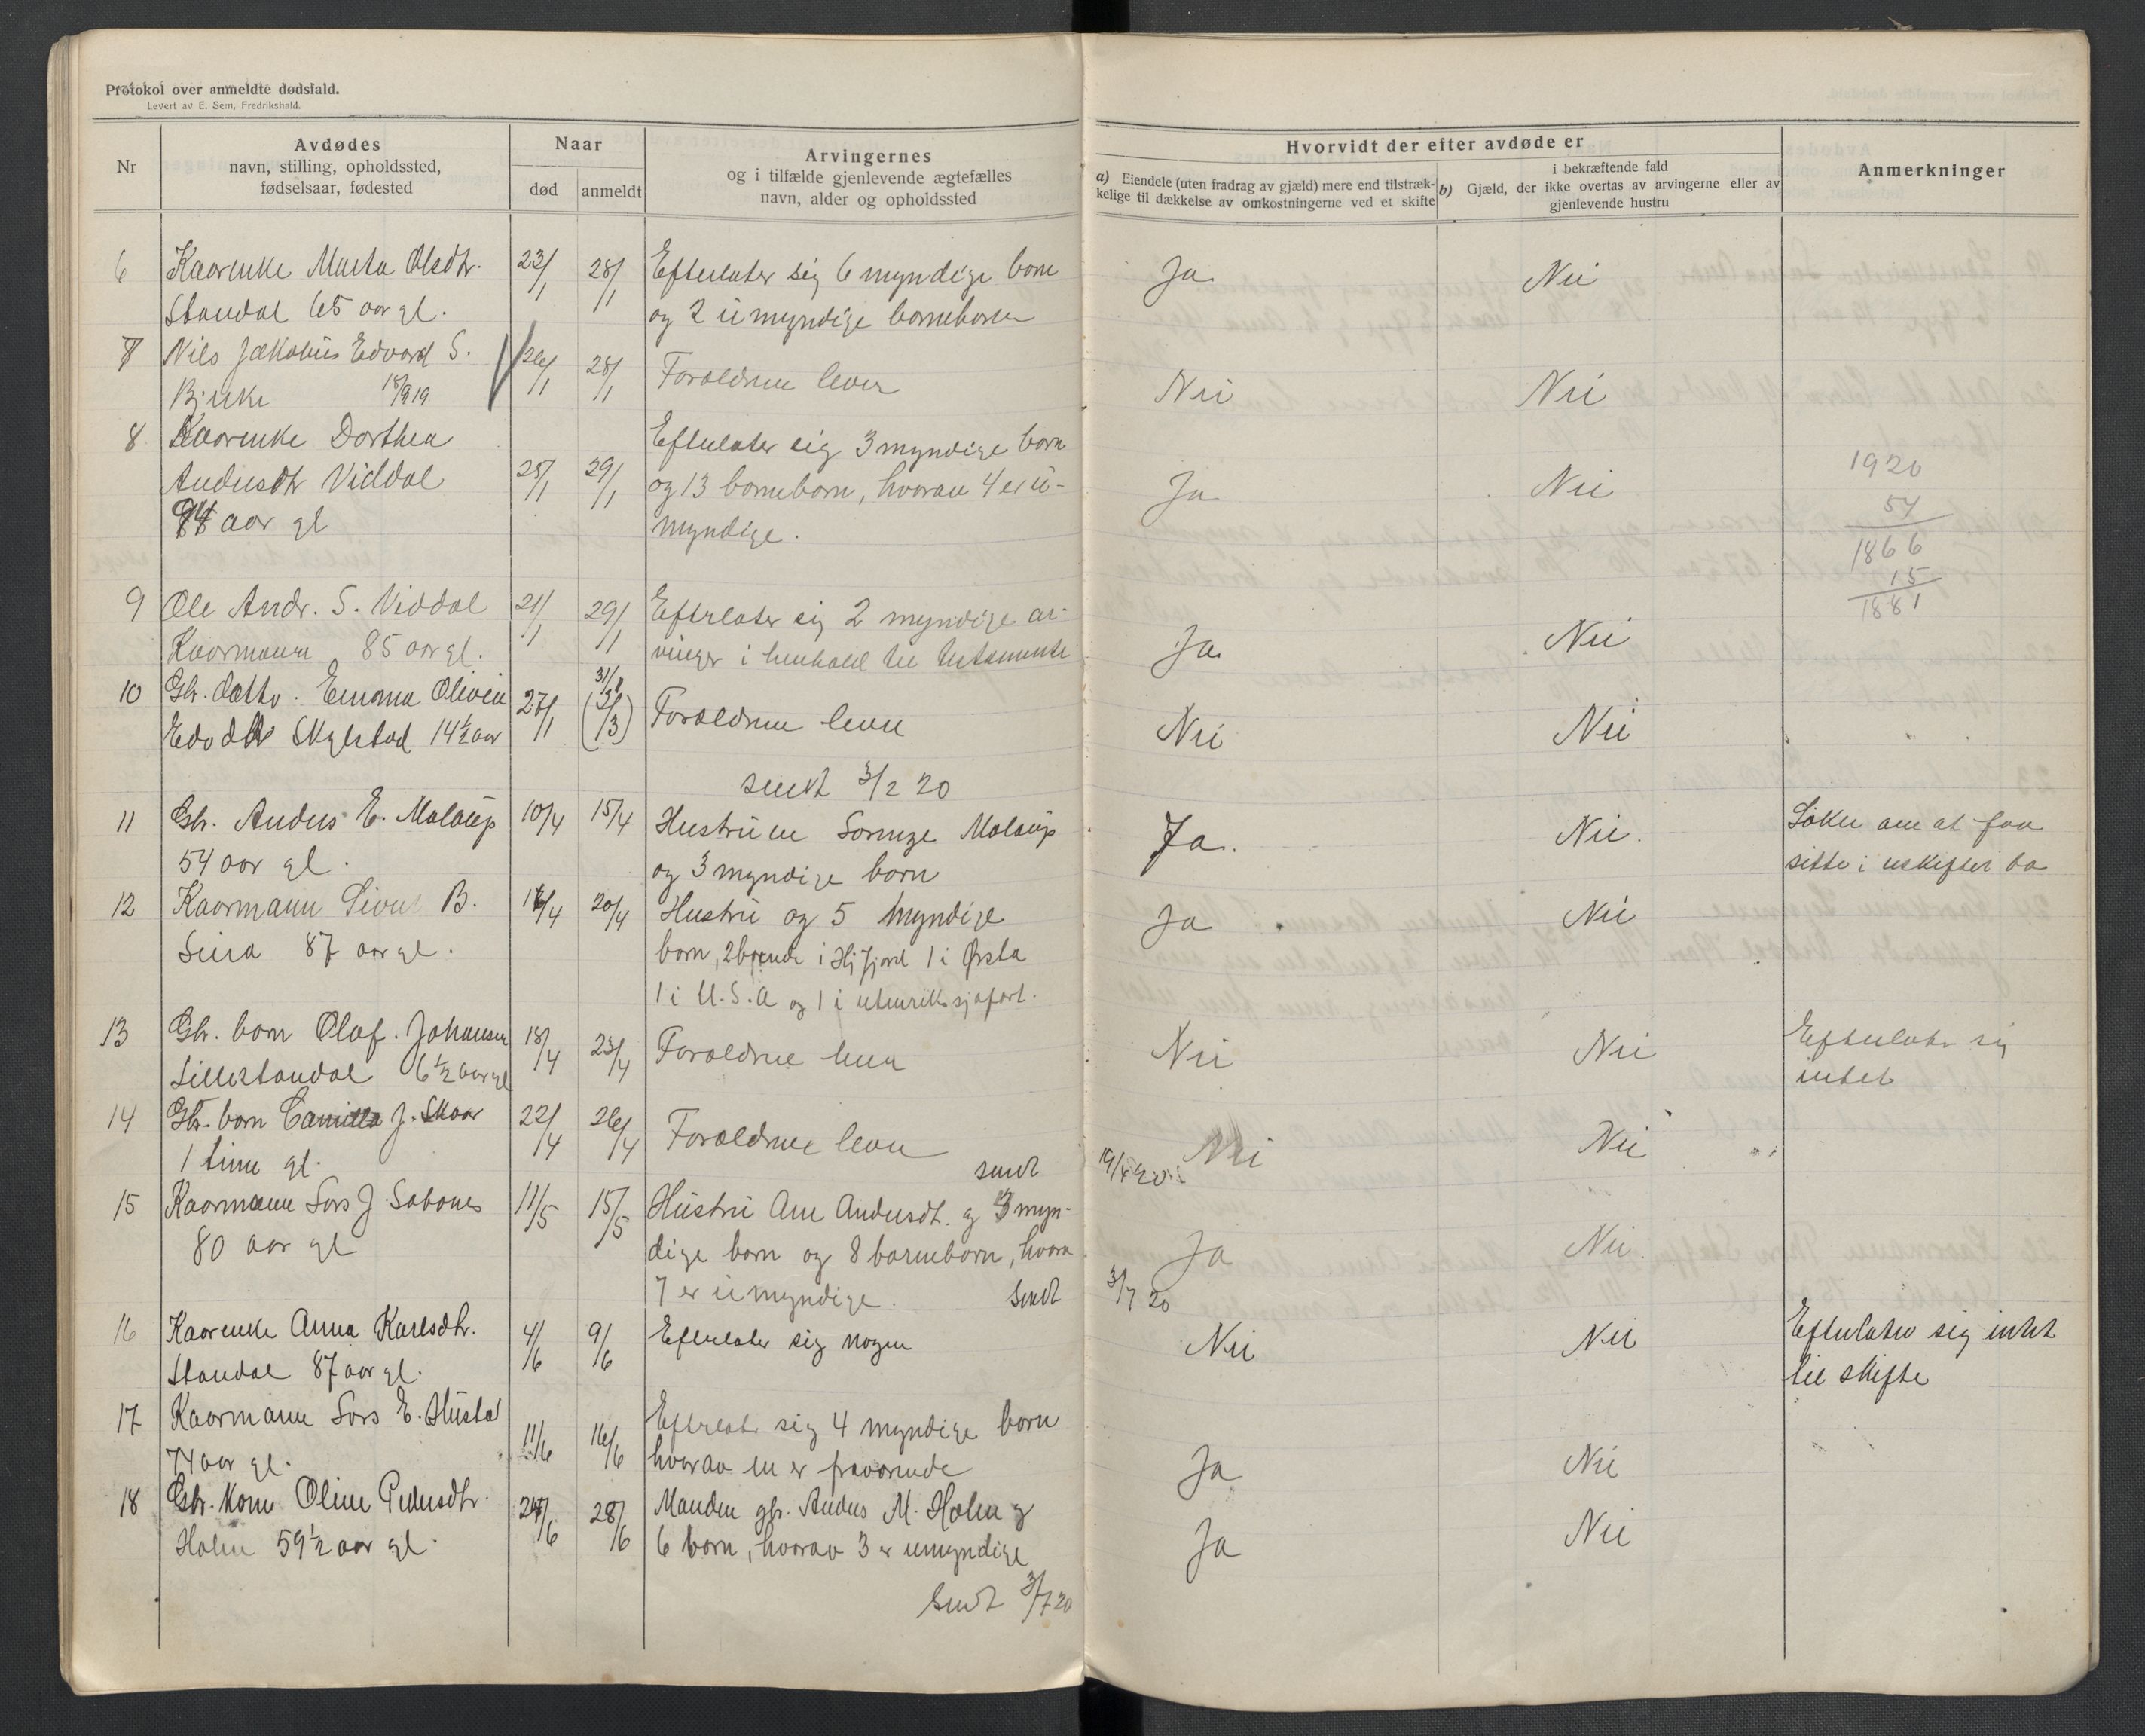 Protokol over anmeldte dødsfald.
Levert av E. Sem, Fredrikshald.
Nr
Avdødes
navn, stilling, opholdssted,
fødselsaar, fødested
Naar
død
anmeldt
Arvingernes
og i tilfælde gjenlevende ægtefælles
navn, alder og opholdssted
Hvorvidt der efter avdøde er
a) Eiendele (uten fradrag av gjæld) mere end tilstræk-
kelige til dækkelse av omkostningerne ved et skifte
i bekræftende fald
b) Gjæld, der ikke overtas av arvingerne eller av
gjenlevende hustru
Anmerkninger
6 Kaarenke Marta Olsdtr. 23/1 28/1 Efterlater sig 6 myndige born Ja Nei
Standal 65 aar gl. og 2 umyndige borneborn
7 Nils Jakobus Edvard S. 26/1 28/1 Foraldrene lever Nei Nei
Bjerke 18/9 19
8 Kaarenke Dorthea Efterlater sig 3 myndige born
Andersdtr Viddal 25/1 29/1 og 13 borneborn, hvorav 4 er u- Ja Nei
94 aar gl myndige.
1920
54
1866
15
1881
9 Ole Andr. S. Viddal 21/1 29/1 Efterlater sig 2 myndige ar- Ja Nei
Kaarmann 85 aar gl. vinger i henhold til testamente
10 Gbr. datter. Emma Olivia 27/1 31/1 (3/3) Foraldrene lever Nei Nei
Edvdtr Skylstad 14½ aar
sendt 3/2 20
11 Gbr. Anders E. Molaup 10/4 15/4 Hustruen Molaup Ja. Nei. Søker om at faa
54 aar gl. og 3 myndige born sitte i uskiftet bo
12 Kaarmann Sivert B. 16/4 20/4 Hustru og 5 myndige Ja Nei
87 aar gl. born, 2 boende i Hj fjord 1 i Ørsta
1 i U.S.A og 1 i utenriks sjøfart.
13 Gbr. born Olaf. Johansen 18/4 23/4 Foraldrene lever Nei Nei Efterlater sig
Lillestandal 6½ aar gl intet
14 Gbr. born Camilla J. Skaar 22/4 26/4 Foraldrene lever Nei Nei
1 time gl. sendt
15 Kaarmann Lars J. Sabones 11/5 15/5 Hustru Ane Andersdt. og 3 myn- Ja Nei.
80 aar gl dige born og 8 borneborn, hvorav
7 er umyndige. Sendt 3/7 20
16 Kaarenke Anna Karlsdtr. 4/6 9/6 Efterlater sig nogen Nei Nei Efterlater sig intet
Standal 87 aar gl. til skifte
17 Kaarmann Lars E. Hustad 11/6 16/6 Efterlater sig 4 myndige born Ja Nei
74 aar gl. hvorav en er fravarende
18 Gbr. kone Oline Pedersdtr. 24/6 28/6 Manden gbr. Anders M. Holen og Ja Nei
Holen 59½ aar gl. 6 born, hvorav 3 er umyndige
Sendt 3/7 20